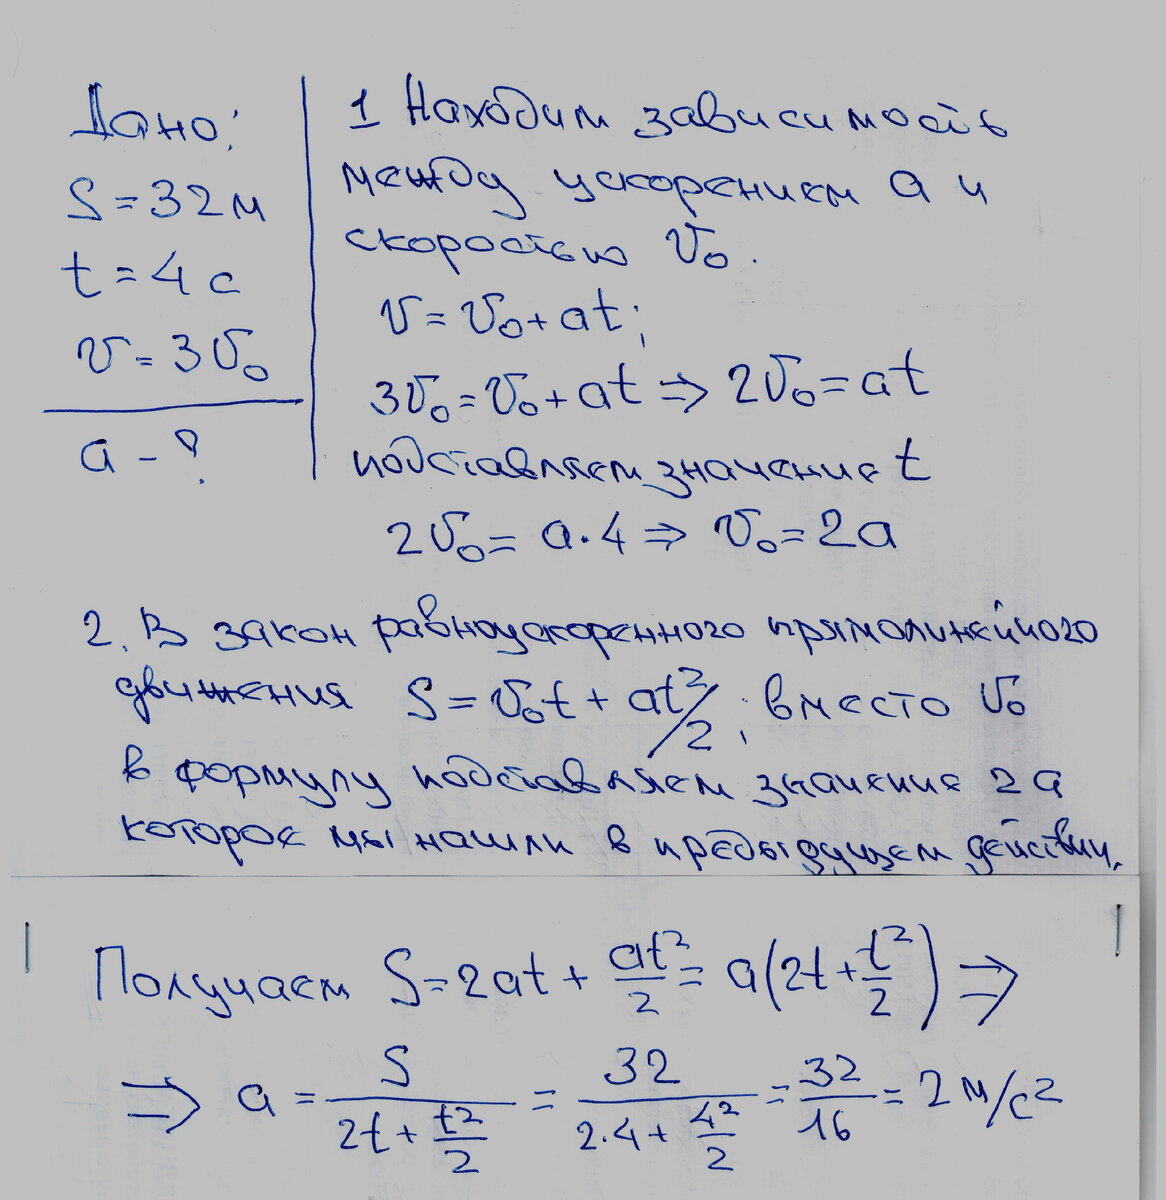 Дано:
S = 32 м
t = 4 с
v = 3v₀
a - ?
1 Находим зависимость
между ускорением a и
скоростью v₀.
v = v₀ + at;
3v₀ = v₀ + at ⇒ 2v₀ = at
подставляем значение t
2v₀ = a · 4 ⇒ v₀ = 2a
2. В закон равноускоренного прямолинейного
движения S = v₀t + at²/2; вместо v₀
в формулу подставляем значение 2a
которое мы нашли в предыдущем действии.
Получаем S = 2at + at²/2 = a(2t + t²/2) ⇒
⇒ a = S/(2t + t²/2) = 32/(2·4 + 4²/2) = 32/16 = 2 м/с²